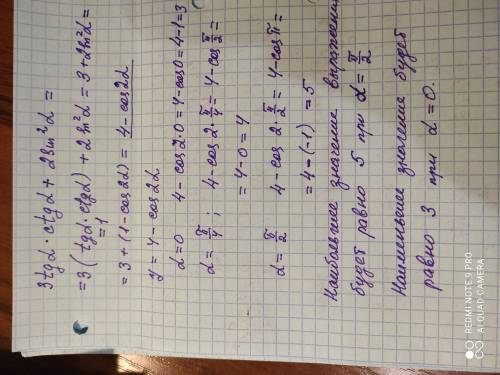 3tgα · ctgα + 2sin²α =
= 3(tgα · ctgα) + 2sin²α = 3 + 2sin²α =
=1
= 3 + (1 - cos2α) = 4 - cos2α
y = 4 - cos2α
α = 0    4 - cos2·0 = 4 - cos0 = 4 - 1 = 3
α = π/4 ;    4 - cos 2·π/4 = 4 - cos π/2 =
= 4 - 0 = 4
α = π/2    4 - cos 2·π/2 = 4 - cos π =
= 4 - (-1) = 5
Наибольшее значение выражения
будет равно 5 при α = π/2
Наименьшее значение будет
равно 3 при α = 0.
REDMI NOTE 9 PRO
AI QUAD CAMERA